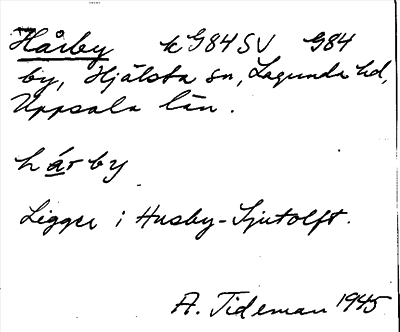 Hårby k G84SV G84
by, Hjälsta sn, Lagunda hd,
Uppsala län.
hárby
Ligger i Husby-Sjutolft.
A. Tideman 1945